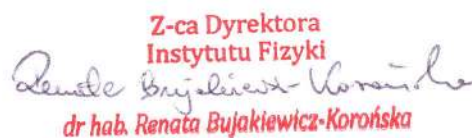 Z-ca Dyrektora
Instytutu Fizyki
Renata Bujakiewicz-Korońska
dr hab. Renata Bujakiewicz-Korońska